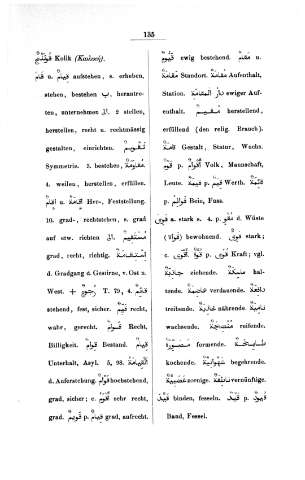 135
قولنج Kolik (Κωλική)
قام u. قيام aufstehen, s. erheben,
stehen, bestehen ب. herantre-
ten, unternehmen الى 2 stellen,
herstellen, recht u. rechtmässig
gestalten, einrichten. تقويم
Symmetrie. 3. bestehen,
4. weilen, herstellen, erfüllen.
اقام u. اقامة Her-, Feststellung.
10. grad-, rechtstehen, s. grad
auf etw. richten مستقيم
grad, recht, richtig. استقامة
d. Gradgang d. Gestirns, v. Ost n.
West. + رجوع T. 79, 4. قائم
stehend, fest, sicher. قيم recht,
wahr, gerecht. قوام Recht,
Billigkeit. قوام Bestand. قيام
Unterhalt, Asyl. 5, 98. القيامة
d. Auferstehung. قوام hochstehend,
grad, sicher; c. اقوم sehr recht,
grad, قويم p. قيام grad, aufrecht.
قيوم ewig bestehend. مقام u.
مقامة Standort. مقامة Aufenthalt,
Station. دار المقامة ewiger Auf-
enthalt. مقيم herstellend,
erfüllend (den relig. Brauch).
قامة Gestalt, Statur, Wuchs.
قوم p. اقوام Volk, Mannschaft,
Leute. قيمة p. قيم Werth.
p. قوائم Bein, Fuss.
قوى a. stark s. 4. p. d. Wüste
(قواء) bewohnend. قوى stark;
c. اقوى. قوة p. قوى Kraft; vgl.
جاذبة ziehende. ماسكة hal-
tende. هاضمة verdauende. دافعة
treibende. غاذية nährende. نامية
wachsende. منضجة reifende.
formende.
kochende. شهوانية begehrende.
غضبية zornige. ناطقة vernünftige.
قيد binden, fesseln. قيد p. قيود
Band, Fessel.